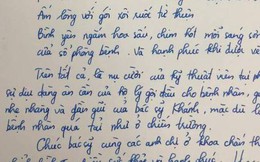 Ấm lòng với gói xôi ruốc từ thiện
Bình yên ngắm hoa sữa, chim hót mỗi sáng
cửa sổ phòng bệnh. Và hạnh phúc khi được về
Trên tất cả, là nụ cười của kỹ thuật viên tại ph
sự dịu dàng ân cần của hộ lý gội đầu cho bệnh nhân, g
nhẹ nhàng và gần gũi của bác sỹ Khánh, mặc dù l
bệnh nhân quá tải như ở chiến trường.
Chúc bác sỹ cùng các anh chị ở khoa chấn th